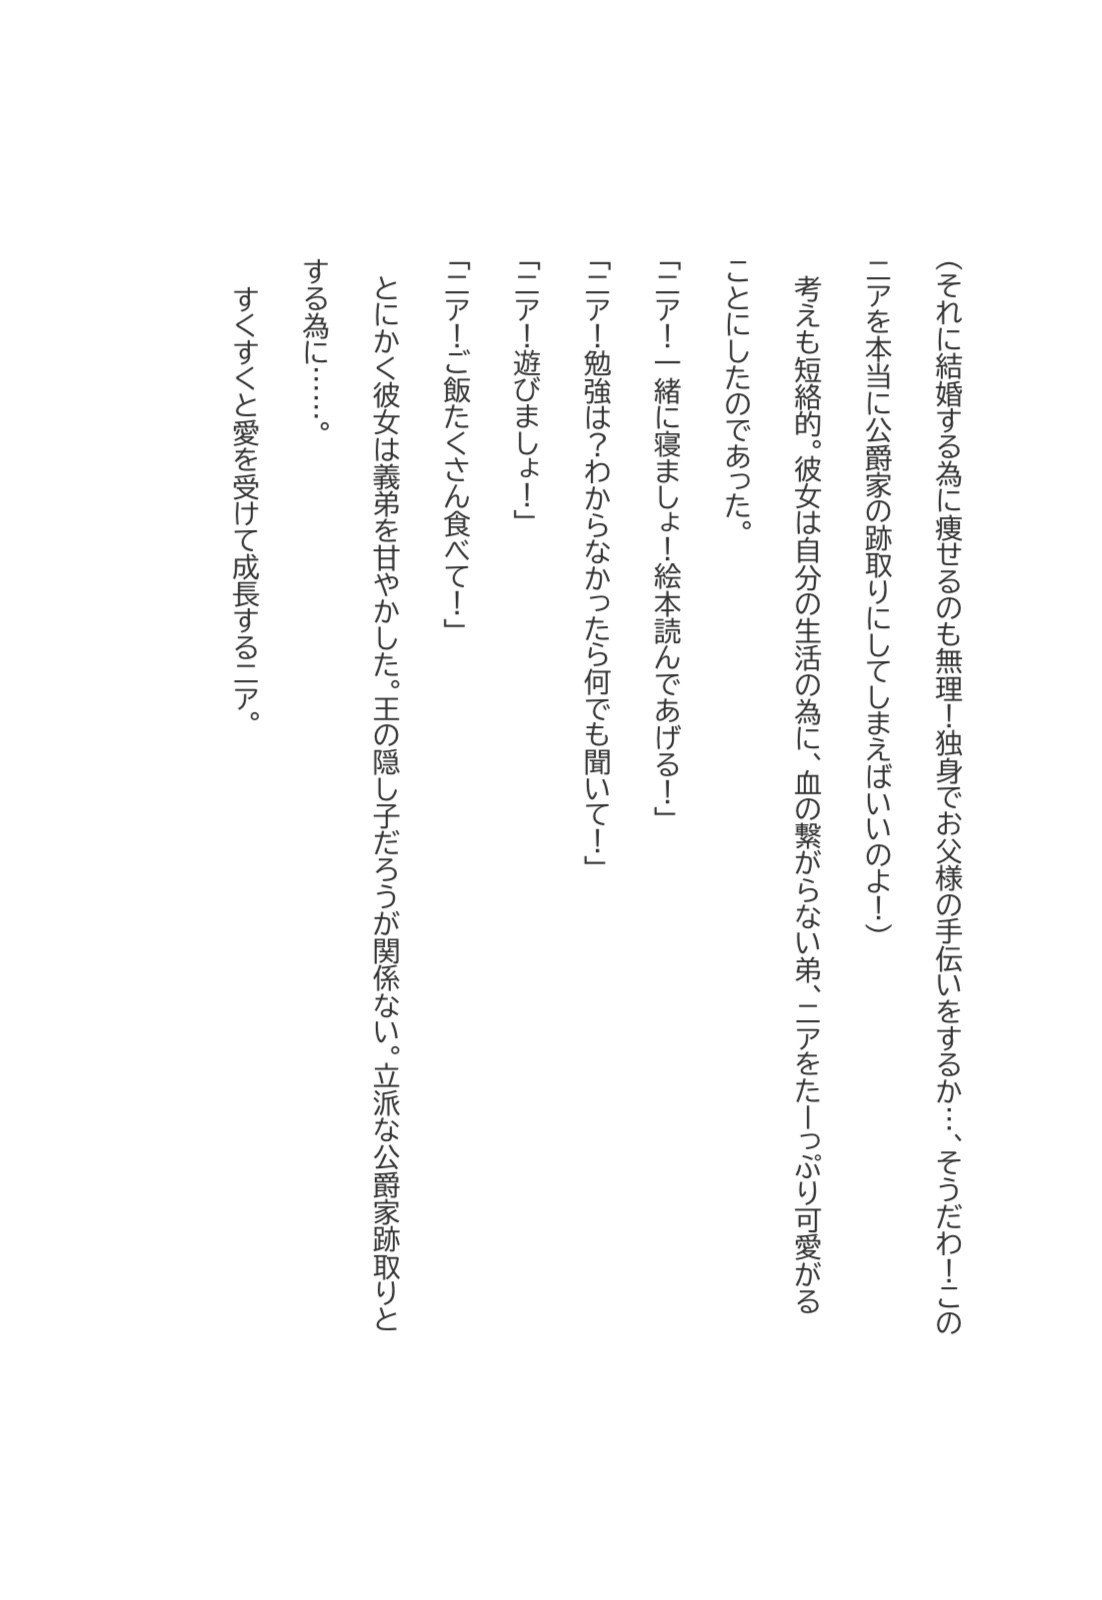 （それに結婚する為に痩せるのも無理！独身でお父様の手伝いをするか…、そうだわ！この
ニアを本当に公爵家の跡取りにしてしまえばいいのよ！）
　考えも短絡的。彼女は自分の生活の為に、血の繋がらない弟、ニアをたーっぷり可愛がる
ことにしたのであった。
「ニア！一緒に寝ましょ！絵本読んであげる！」
「ニア！勉強は？わからなかったら何でも聞いて！」
「ニア！遊びましょ！」
「ニア！ご飯たくさん食べて！」
　とにかく彼女は義弟を甘やかした。王の隠し子だろうが関係ない。立派な公爵家跡取りと
する為に……。
　すくすくと愛を受けて成長するニア。